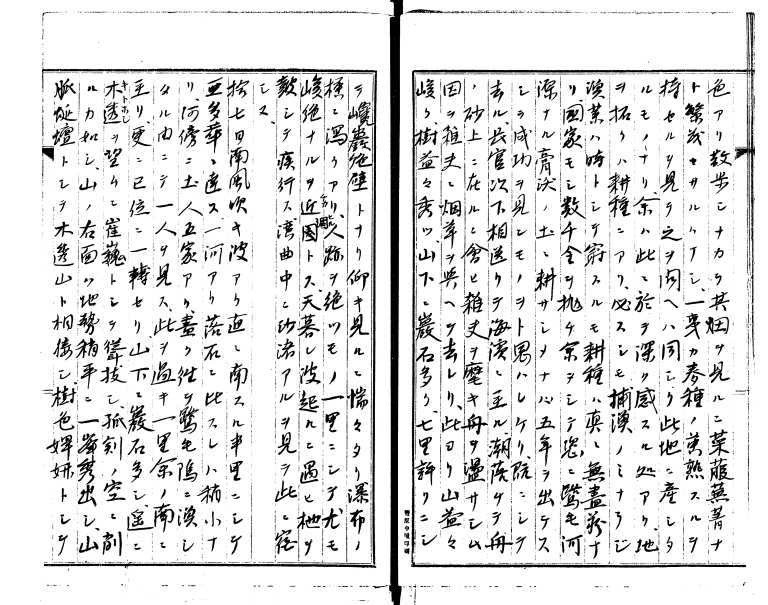 色アリ散歩シナカラ其烟ヲ見ルニ菜菔蕪菁ナ
ト繁茂セサルハナシ、一夢カ麥種ノ蒸熟スルヲ
持セルヲ見テ之ヲ問ヘハ同シク此地ニ産シタ
ルモノナリ、余ハ此ニ於テ深ク感スル処アリ、地
ヲ拓クハ耕種ニアリ、必スシモ捕漁ノミナラン
漁業ハ時トシテ窮スルモ耕種ハ真ニ無盡蔵ナ
リ國家モシ数千金ヲ抛チ余ヲシテ恣ニ鷲毛河
源ナル膏沃ノ土ニ耕サシメナハ五年ヲ出テス
シテ成功ヲ見ンモノヲト思ハレケリ、既ニシテ
去ル、兵官次下相送リテ海濱ニ至ル潮落テ舟
砂上ニ在ルニ會ヒ雑丈ヲ麾キ舟ヲ盪サシム
因テ雑丈ニ烟草ヲ與ヘテ去レリ、此ヨリ山益々
峻ク樹益々秀ツ、山下ニ巌石多ク、七里許リニシ
テ巉巌絶壁トナリ仰キ見ルニ惴々タリ瀑布ノ
極ニ瀉クアリ、人跡ヲ絶ツモノ一里ニシテ尤モ
峻絶ナルヲ近國トス、天暮レ波起ルニ遇ヒ柂ヲ
皷シテ疾行ス湾曲中ニ沙渚アルヲ見テ此ニ宿
シス
按七日南風吹キ波アリ直ニ南スル事里ニシテ
亜多華ニ達ス一河アリ落石ニ比スレハ稍小ナ
リ、河傍ニ土人五家アリ盡ク往テ鷲毛隝ニ漁シ
タル由ニテ一人ヲ見ス、此ヲ過キ一里余ノ南ニ
至リ、更ニ已位ニ一轉セリ山下ニ巌石多シ、遥ニ
木透ヲ望ムニ崔巍トシテ聳抜シ孤剣ノ空ニ削
ルカ如シ、山ノ右面ノ地勢稍平ニ一峯秀出シ、山
脈蜒蟺トシテ木透山ト相接シ樹色娟妍トシテ